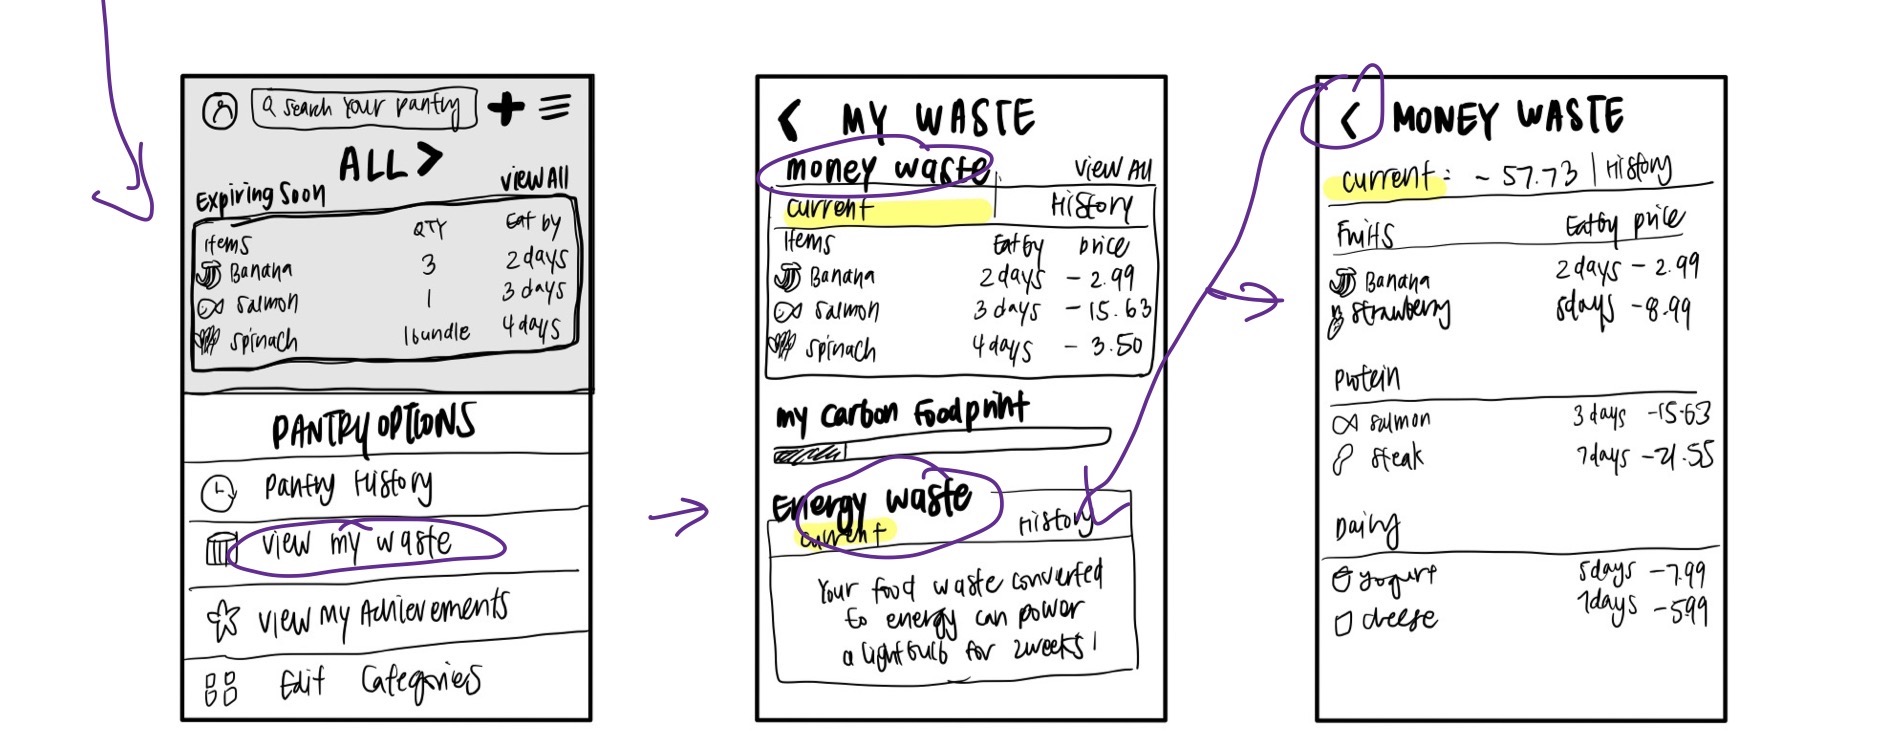 Search your pantry
ALL >
Expiring Soon
View All
Items QTY Eat by
Banana 3 2 days
Salmon 1 3 days
Spinach 1 bundle 4 days
PANTRY OPTIONS
Pantry History
View my waste
View My Achievements
Edit Categories
< MY WASTE
money waste View All
current History
Items Eat by price
Banana 2 days - 2.99
Salmon 3 days - 15.63
Spinach 4 days - 3.50
my carbon foodprint
Energy waste
current History
Your food waste converted
to energy can power
a lightbulb for 2 weeks!
< MONEY WASTE
current: ~ 57.73 | History
Fruits Eat by price
Banana 2 days - 2.99
Strawberry 5 days - 8.99
Protein
Salmon 3 days -15.63
Steak 7 days -21.55
Dairy
yogurt 5 days -7.99
cheese 7 days -599